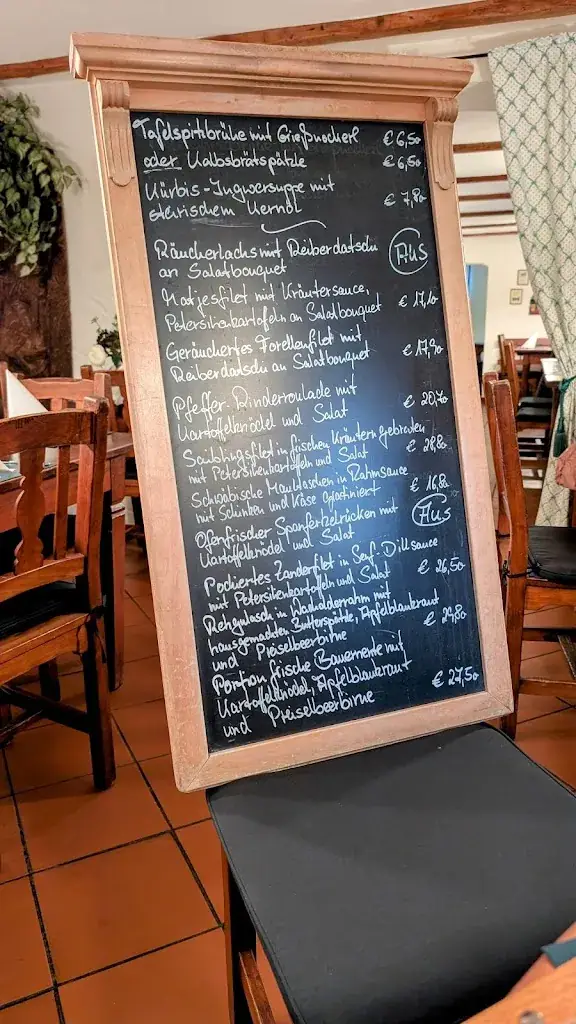 Tafelspitzbrühe mit Grießnockerl € 6,50
oder Kalbsbrätspätzle € 6,50
Kürbis-Ingwersuppe mit € 7,80
steirischem Kernöl
Räucherlachs mit Reiberdatschi Aus
an Salatbouquet
Matjesfilet mit Kräutersauce, € 17,10
Petersilienkartoffeln an Salatbouquet
Geräuchertes Forellenfilet mit € 17,90
Reiberdatschi an Salatbouquet
Pfeffer-Rinderroulade mit € 20,70
Kartoffelknödel und Salat
Saiblingsfilet in frischen Kräutern gebraten € 28,80
mit Petersilienkartoffeln und Salat
Schwäbische Maultaschen in Rahmsauce € 16,80
mit Schinken und Käse
Ofenfrischer Spanferkelrücken mit Aus
Kartoffelknödel und Salat
Pochiertes Zanderfilet in Senf-Dillsauce € 26,50
mit Petersilienkartoffeln und Salat
Rehgulasch in Wacholderrahm mit € 24,80
hausgemachten Butterspätzle, Apfelblaukraut
und Preiselbeerbirne
Portion frische Bauernente mit € 27,50
Kartoffelknödel, Apfelblaukraut
und Preiselbeerbirne